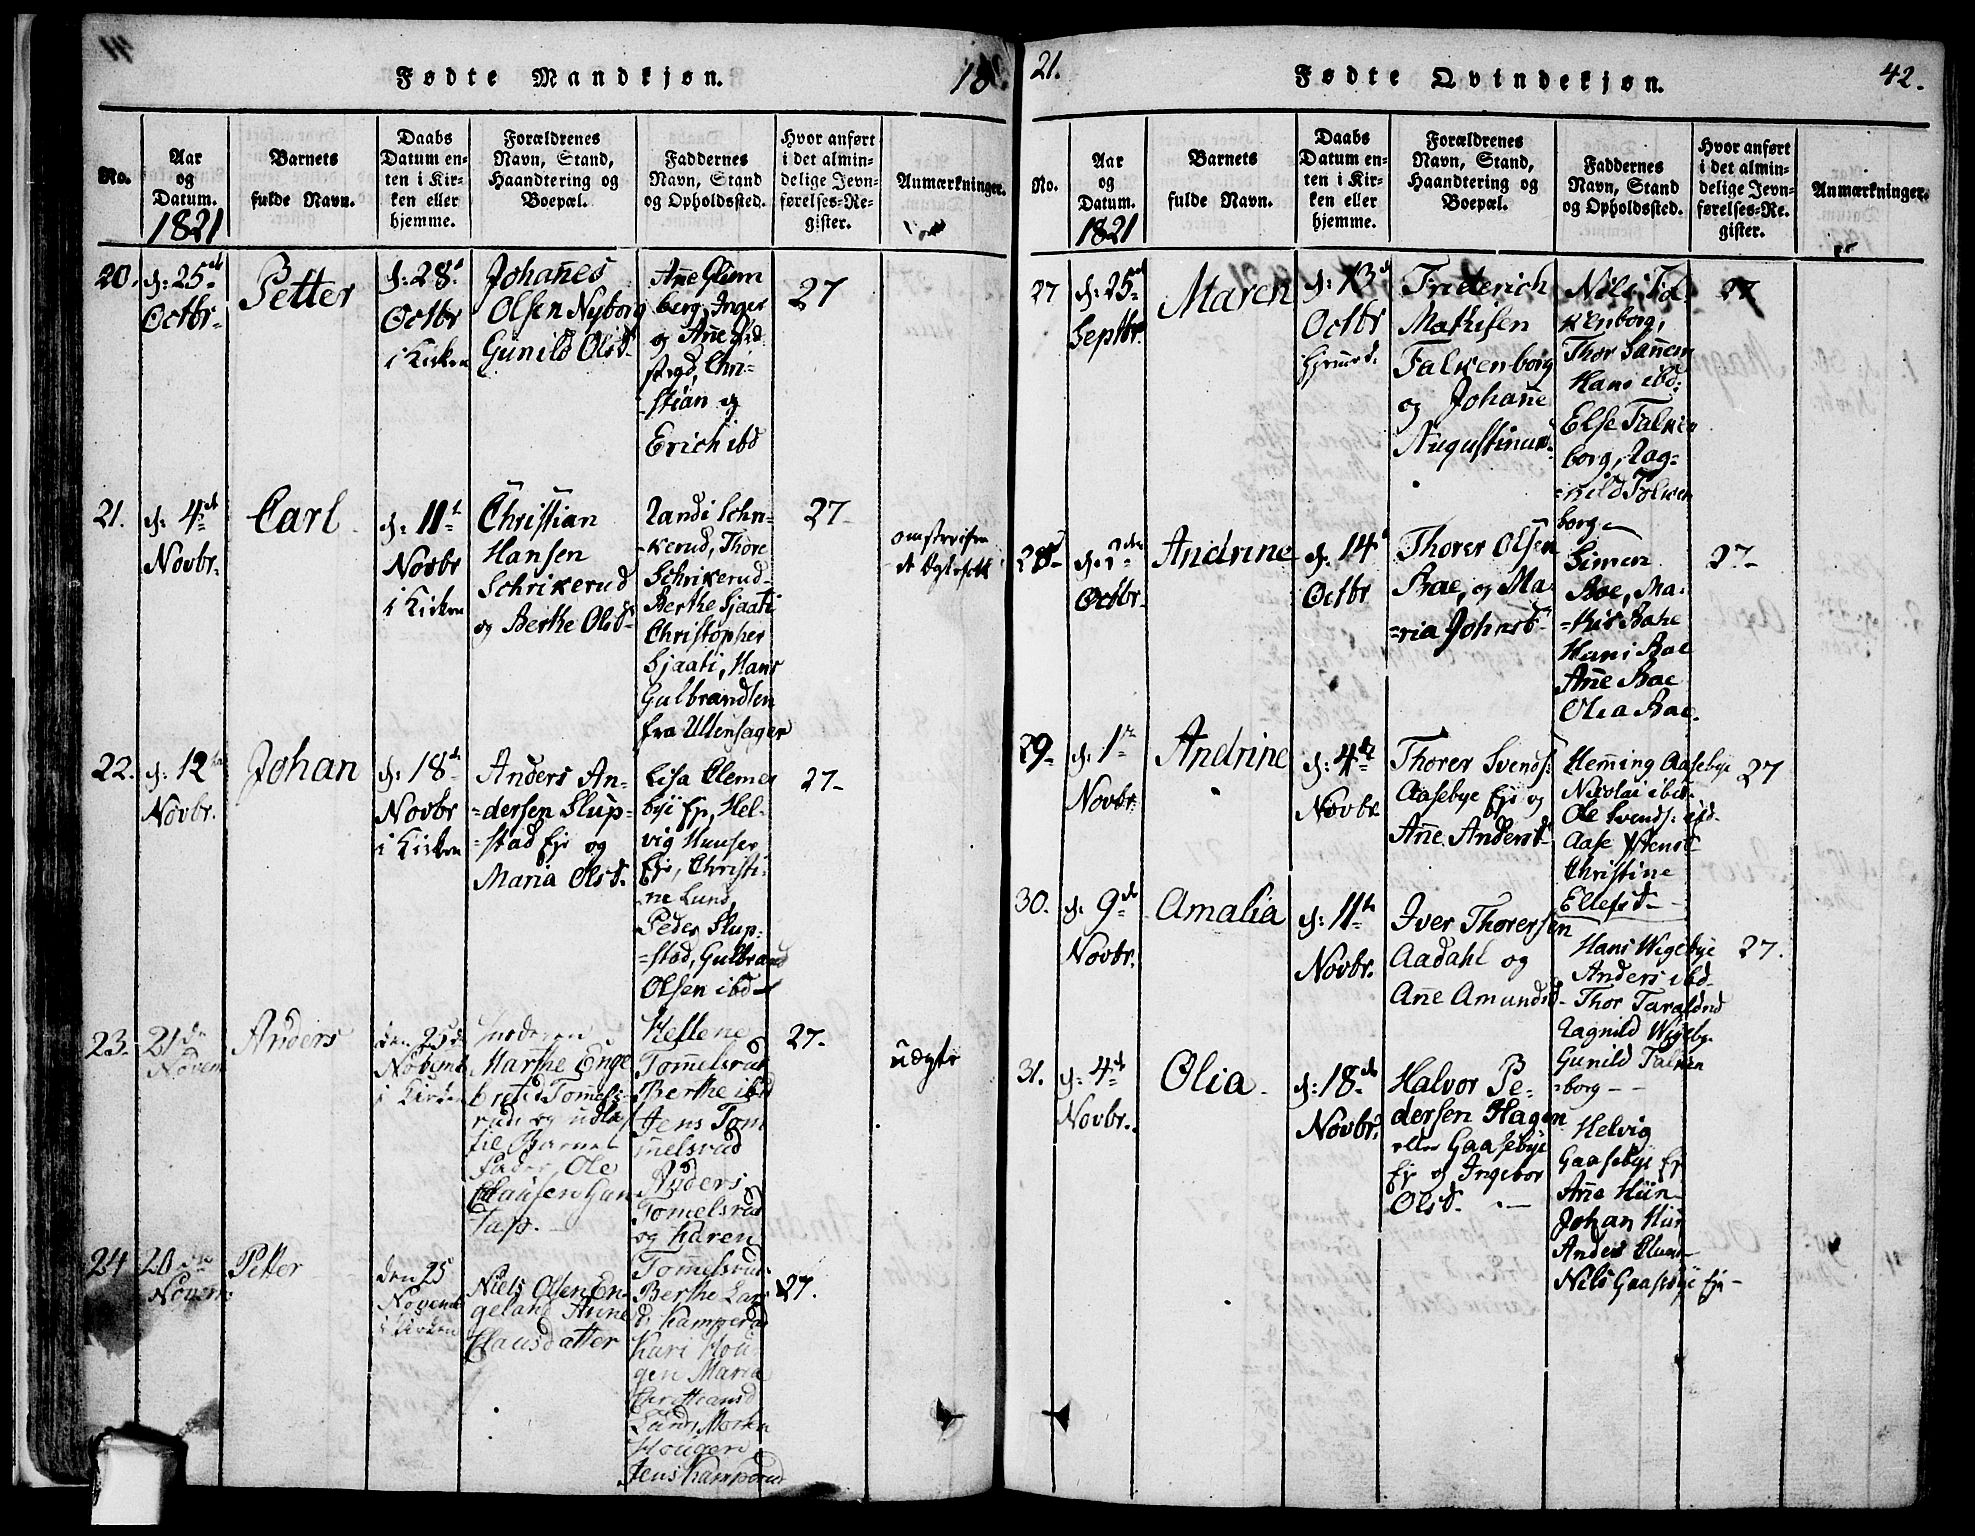 Fødte Mandkjøn.
18
No.
Aar
og
Datum.
1821
Barnets
fulde Navn.
Daabs
Datum en-
ten i Kir-
ken eller
hjemme.
Forældrenes
Navn, Stand,
Haandtering og
Boepæl.
Faddernes
Navn, Stand
og Opholdssted.
Hvor anført
i det almin-
delige Jevn-
førelses-Re-
gister.
Anmærkninger.
20.
d: 25
Octbr.
Petter
d: 28
Octbr
i Kirken
Johañes
Olsen Nyborg
Gunild Olsd.
Añe Glem
berg, Inger
og Añe
Chri-
stian og
Erich ibd
27
21.
d: 4
Novbr.
Carl
d: 11
Novbr
i Kirken
Christian
Hansen
Schrikerud
og Berthe Olsd.
Randi Schri-
kerud, Thore
Schrikerud
Berthe Sjaati
Christopher
Sjaati, Hans
Gulbrandsen
fra Ullensager
27.
22.
d: 12
Novbr.
Johan
d: 18
Novbr
i Kirken
Anders An-
=dersen Slup-
=stad Eje og
Maria Olsd.
Lisa Clemes
bye Ej, Hel-
vig Huuser
Eje, Christi-
ne Lund,
Peder Slup-
=stad, Gulbrand
Olsen ibd
27.
23.
21
Novem
Anders
den 25
Novemb
i Kirken
Marthe Enge
bretsd Tomels-
rud, og udlaf
til Barnets
Fader, Ole
Clausen
Hellene
Tom̄elsrud
Berthe ibd
Jens Tom
melsrud
Anders
Tomelsrud
og Karen
Tom̄elsrud
27.
uægte
24
20
Novem
Peter
den 25
Novemb
i Kirken
Niels Olsen En-
geland Anne
Clausdatter
Berthe Lars
d, Kamperud
Kari Hou
gen Maria
Christiansd
Lund, Morten
Hougen
Jens Kamperud
27.
21.
Fødte Qvindekjøn.
42.
No.
Aar
og
Datum.
1821
Barnets
fulde Navn.
Daabs
Datum en-
ten i Kir-
ken eller
hjemme.
Forældrenes
Navn, Stand,
Haandtering og
Boepæl.
Faddernes
Navn, Stand
og Opholdssted.
Hvor anført
i det almin-
delige Jevn-
førelses-Re-
gister.
Anmærkninger.
27
d: 25
Septbr.
Maren
d: 13
Octbr
Friderich
Mathisen
Falkenborg
og Johañe
Augustinusd.
Nils Fal-
kenborg,
Thor Sañem
Hans ibd:
Else Falken
borg, Rag-
=nild Falken
borg
27
28
Octbr.
Andrine
d. 14
Octbr
Thorer Olsen
Bae, og Ma-
=ria Johnsd.
Simen
Bae, Ma-
=this Bahe
Hans Bae
Añe Bae
Olia Bae.
27.
29.
d. 1
Novbr.
Andrine
d: 4
Novbr.
Thorer Svends:
Aasebye Eje og
Añe Andersd.
Hem̄ing Aasebye
Nicolai ibd.
Ole Svends: ibd.
Aase Ystensd
Christine
Ellefsd
27
30.
d. 9
Novbr.
Amalia
d: 11
Novbr.
Iver Thorersen
Aadahl og
Añe Amundsd.
Hans Wigebye
Anders ibd.
Thor Taraldrud
Ragnild Wigeby.
Gunild Falken
=borg
27.
31.
d: 4
Novbr.
Olia.
d: 18
Novbr.
Halvor Pe-
dersen Hagen
eller Gaasebye
Eje og Ingebor
Olsd.
Helvig
Gaasebye Ej
Añe Hün
Johan Hün
Anders
Nils Gaasebye Eje